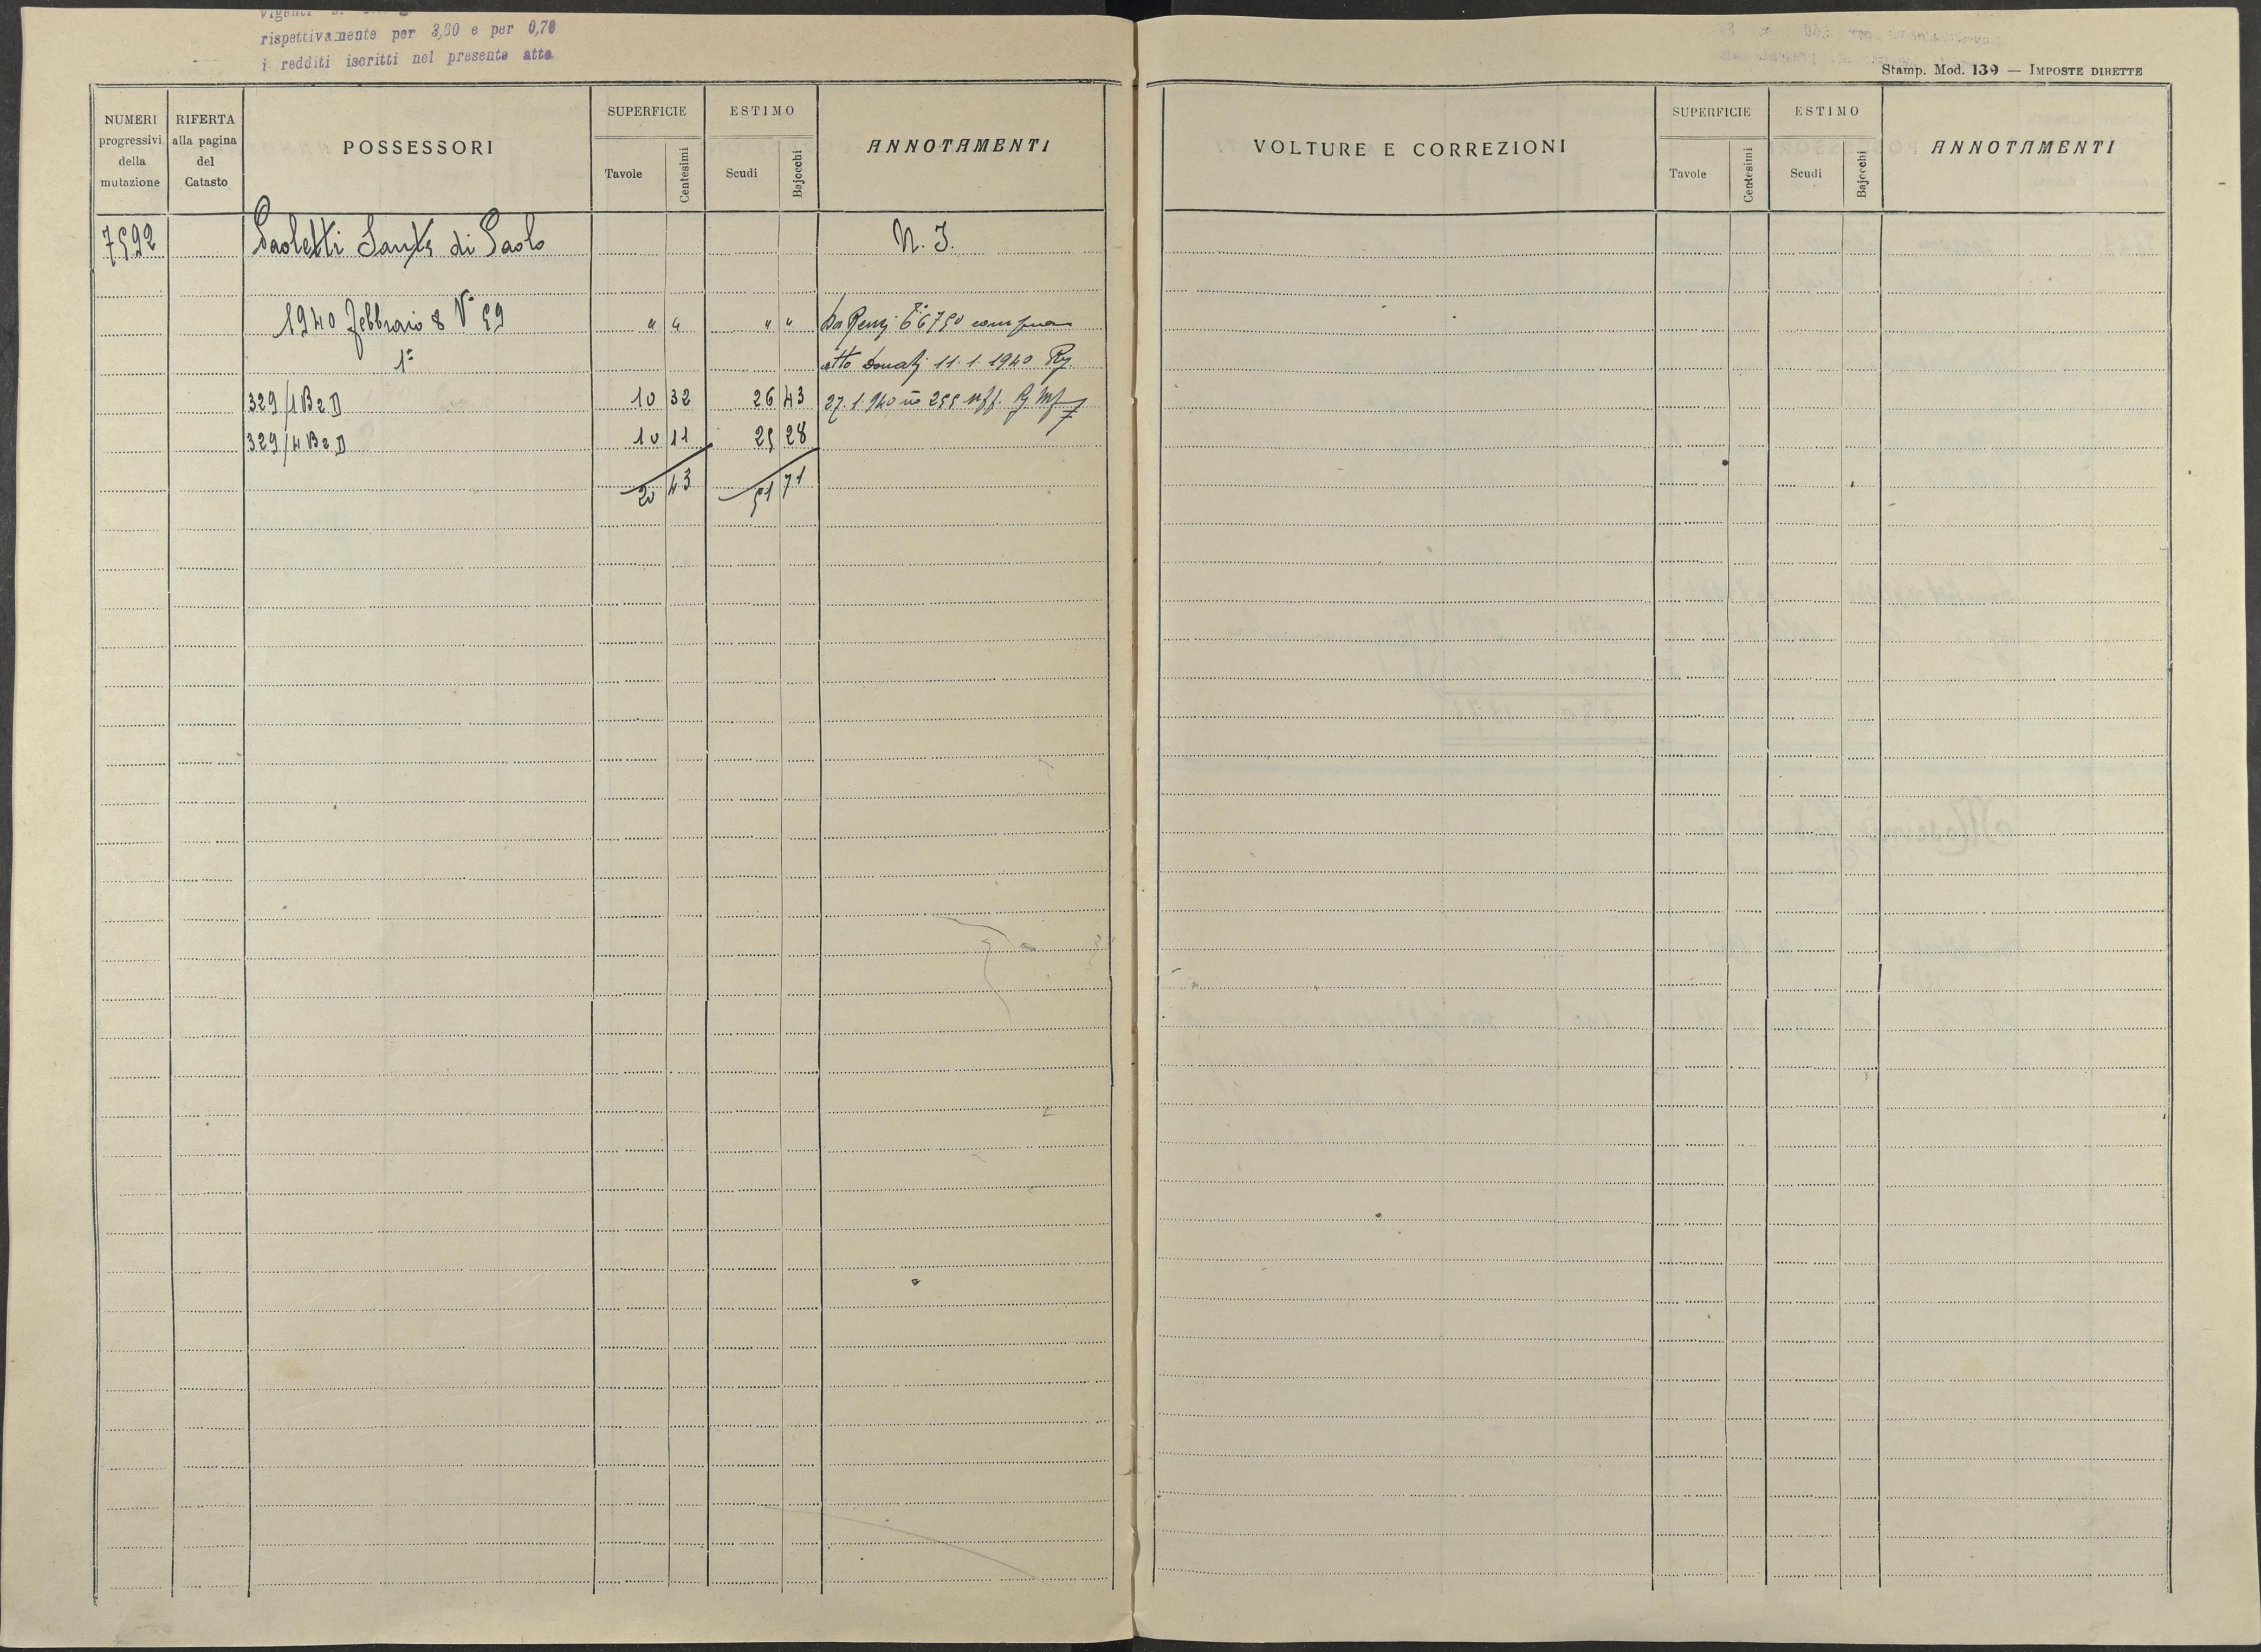 rispettivamente per 3,60 e per 0,70
i redditi iscritti nel presente atto
NUMERI progressivi della mutazione
RIFERTA alla pagina del Catasto
POSSESSORI
SUPERFICIE
Tavole
Centesimi
ESTIMO
Scudi
Bajocchi
ANNOTAMENTI
7592 Paoletti Sante di Paolo N. I.
1940 Febbraio 8 N° 59 " " " " Da 6750
1°
atto Donati 11.1.1940 Rg.
329/1 B2D 10 32 26 43 27.1.940 n° 255 uff.
329/4 B2D 10 11 25 28
20 43 51 71
Stamp. Mod. 139 — IMPOSTE DIRETTE
VOLTURE E CORREZIONI
SUPERFICIE
Tavole
Centesimi
ESTIMO
Scudi
Bajocchi
ANNOTAMENTI